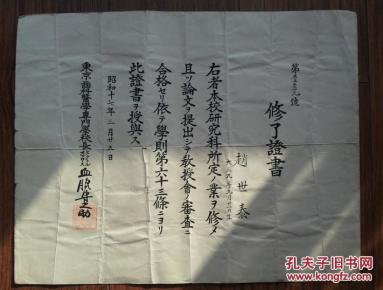 修了證書
趙世泰
右者本校研究科所定ノ業ヲ修メ
且ツ論文ヲ提出シテ教授會ノ審査ニ
合格セリ依テ學則第六十三條ニヨリ
此證書ヲ授與ス
昭和十七年二月廿五日
東京齒科醫學專門學校長
血脇守之助
孔夫子旧书网